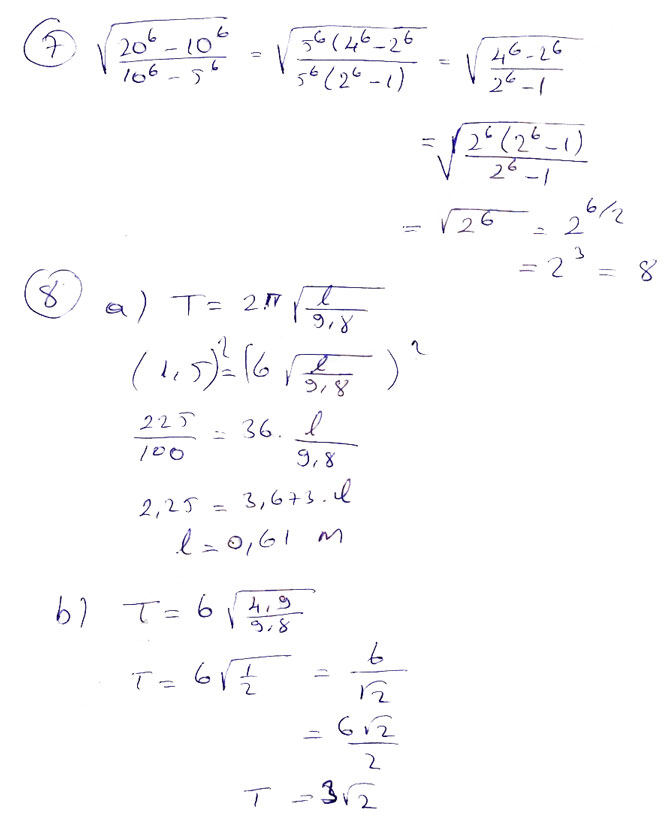 7 √((20⁶ − 10⁶)/(10⁶ − 5⁶)) = √((5⁶(4⁶ − 2⁶)/(5⁶(2⁶ − 1))) = √((4⁶ − 2⁶)/(2⁶ − 1))
= √((2⁶(2⁶ − 1))/(2⁶ − 1))
= √2⁶ = 2^(6/2)
= 2³ = 8
8 a) T = 2π √(l/9,8)
(1,5)² = (6 √(l/9,8))²
225/100 = 36 · l/9,8
2,25 = 3,673 · l
l = 0,61 m
b) T = 6 √(4,9/9,8)
T = 6 √(1/2) = 6/√2
= 6√2/2
T = 3√2